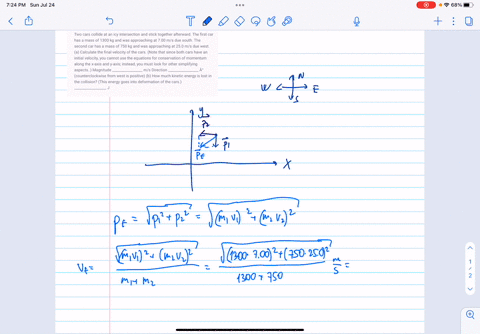 7:24 PM Sun Jul 24
68%
Two cars collide at an icy intersection and stick together afterward. The first car
has a mass of 1300 kg and was approaching at 7.00 m/s due south. The
second car has a mass of 750 kg and was approaching at 25.0 m/s due west.
(a) Calculate the final velocity of the cars. (Note that since both cars have an
initial velocity, you cannot use the equations for conservation of momentum
along the x-axis and y-axis; instead, you must look for other simplifying
aspects.) Magnitude ______ m/s Direction ______°
(counterclockwise from west is positive) (b) How much kinetic energy is lost in
the collision? (This energy goes into deformation of the cars.)
______ J
N
W E
S
y
P₂
P⃗₁
P⃗f
X
Pf = √(P₁² + P₂²) = √((m₁v₁)² + (m₂v₂)²)
Vf = √((m₁v₁)² + (m₂v₂)²) / (m₁ + m₂) = √((1300·7.00)² + (750·250)²) / (1300 + 750) m/s =
1
2